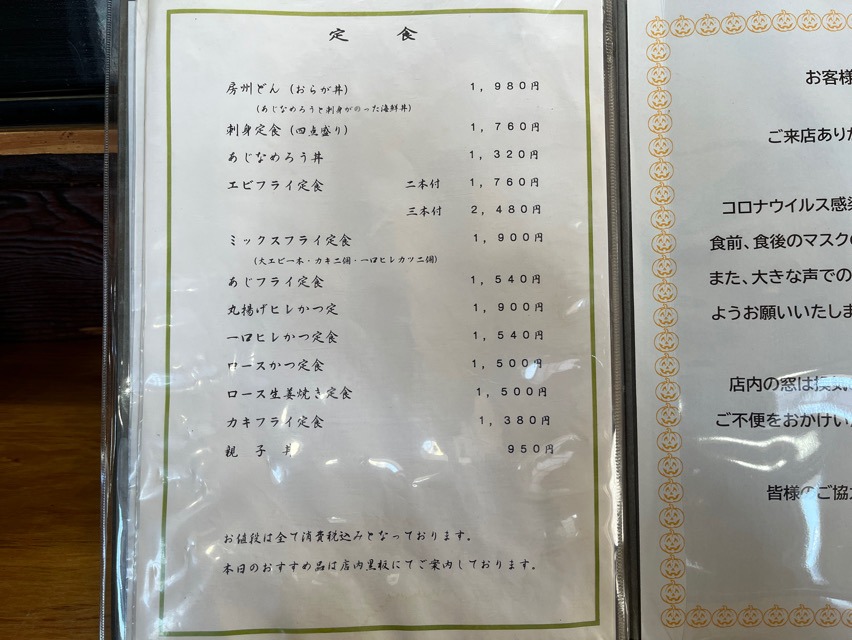 定 食
房州どん（おらが丼） 1,980円
（あじなめろうと刺身がのった海鮮丼）
刺身定食（四点盛り） 1,760円
あじなめろう丼 1,320円
エビフライ定食 二本付 1,760円
三本付 2,480円
ミックスフライ定食 1,900円
（大エビ一本・カキ二個・一口ヒレカツ二個）
あじフライ定食 1,540円
丸揚げヒレかつ定 1,900円
一口ヒレかつ定食 1,540円
ロースかつ定食 1,500円
ロース生姜焼き定食 1,500円
カキフライ定食 1,380円
親 子 丼 950円
お値段は全て消費税込みとなっております。
本日のおすすめ品は店内黒板にてご案内しております。
お客様
ご来店ありが
コロナウイルス感染
食前、食後のマスクの
また、大きな声での
ようお願いいたしま
店内の窓は換気
ご不便をおかけい
皆様のご協力